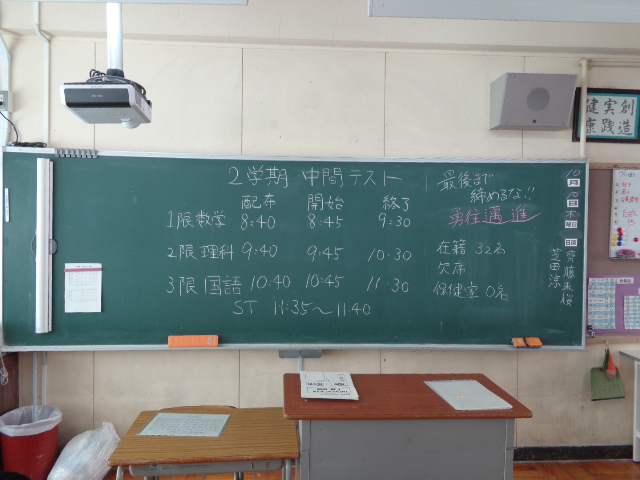 2学期 中間テスト
配布 開始 終了
1限 数学 8:40 8:45 9:30
2限 理科 9:40 9:45 10:30
3限 国語 10:40 10:45 11:30
ST 11:35〜11:40
最後まで
締めるな!!
勇往邁進
在籍 32名
欠席
保健室 0名
10月10日木曜日
日直
芝田涼
創造
実践
健康